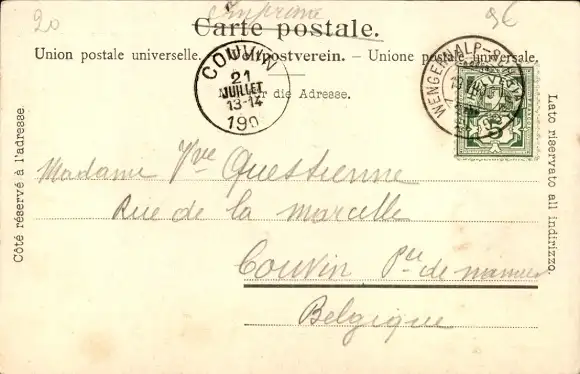 20 imprimé 9€
Carte postale.
Union postale universelle. — Weltpostverein. — Unione postale universale.
Nur für die Adresse.
COUVIN
21
JUILLET
13-14
190
WENGERNALP-SCHEIDEGG
5
Côté réservé à l'adresse.
Lato riservato all indirizzo.
Madame Vve Questienne
Rue de la marcelle
Couvin Pce de namur
Belgique